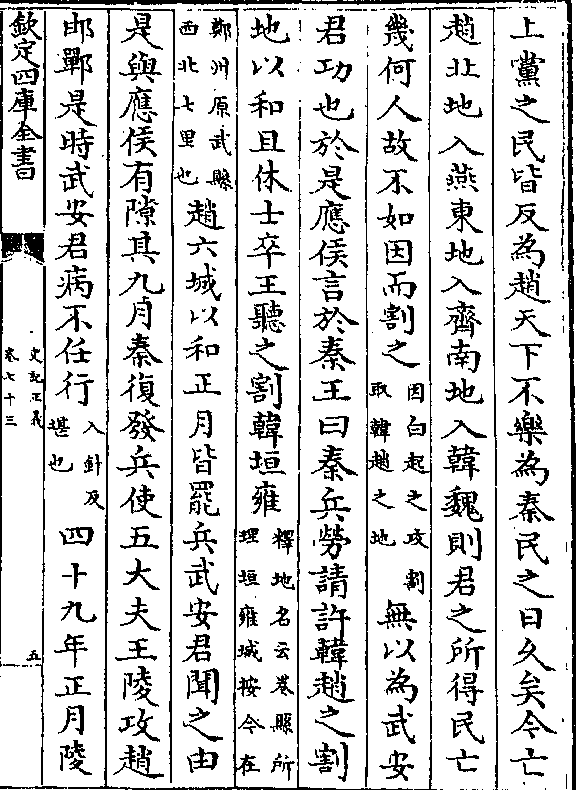 上黨之民皆反為趙天下不樂為秦民之日久矣今亡
趙北地入燕東地入齊南地入韓魏則君之所得民亡
幾何人故不如因而割之因白起之攻割取韓趙之地無以為武安
君功也於是應侯言於秦王曰秦兵勞請許韓趙之割
地以和且休士卒王聽之割韓垣雍釋地名云卷縣所理垣雍城按今在
鄭州原武縣西北七里也趙六城以和正月皆罷兵武安君聞之由
是與應侯有隙其九月秦復發兵使五大夫王陵攻趙
邯鄲是時武安君病不任行入針反堪也四十九年正月陵
欽定四庫全書
史記正義
卷七十三
五